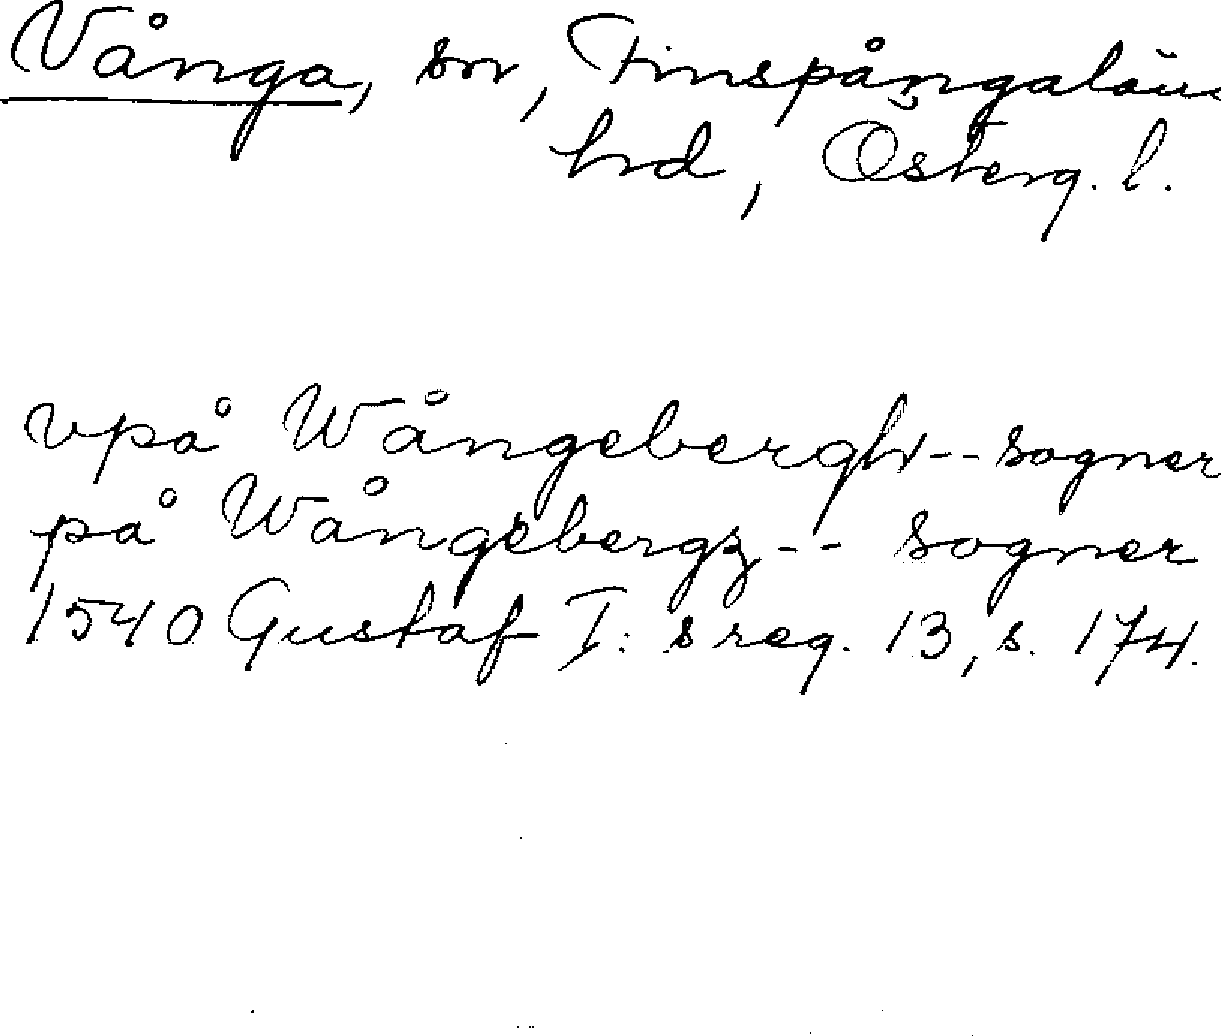 Vånga, sn, Finspångaläns
hd, Österg. l.
vpå Wångebergh -- sogner
på Wångebergz -- sogner
1540 Gustaf I: s reg. 13, s. 174.